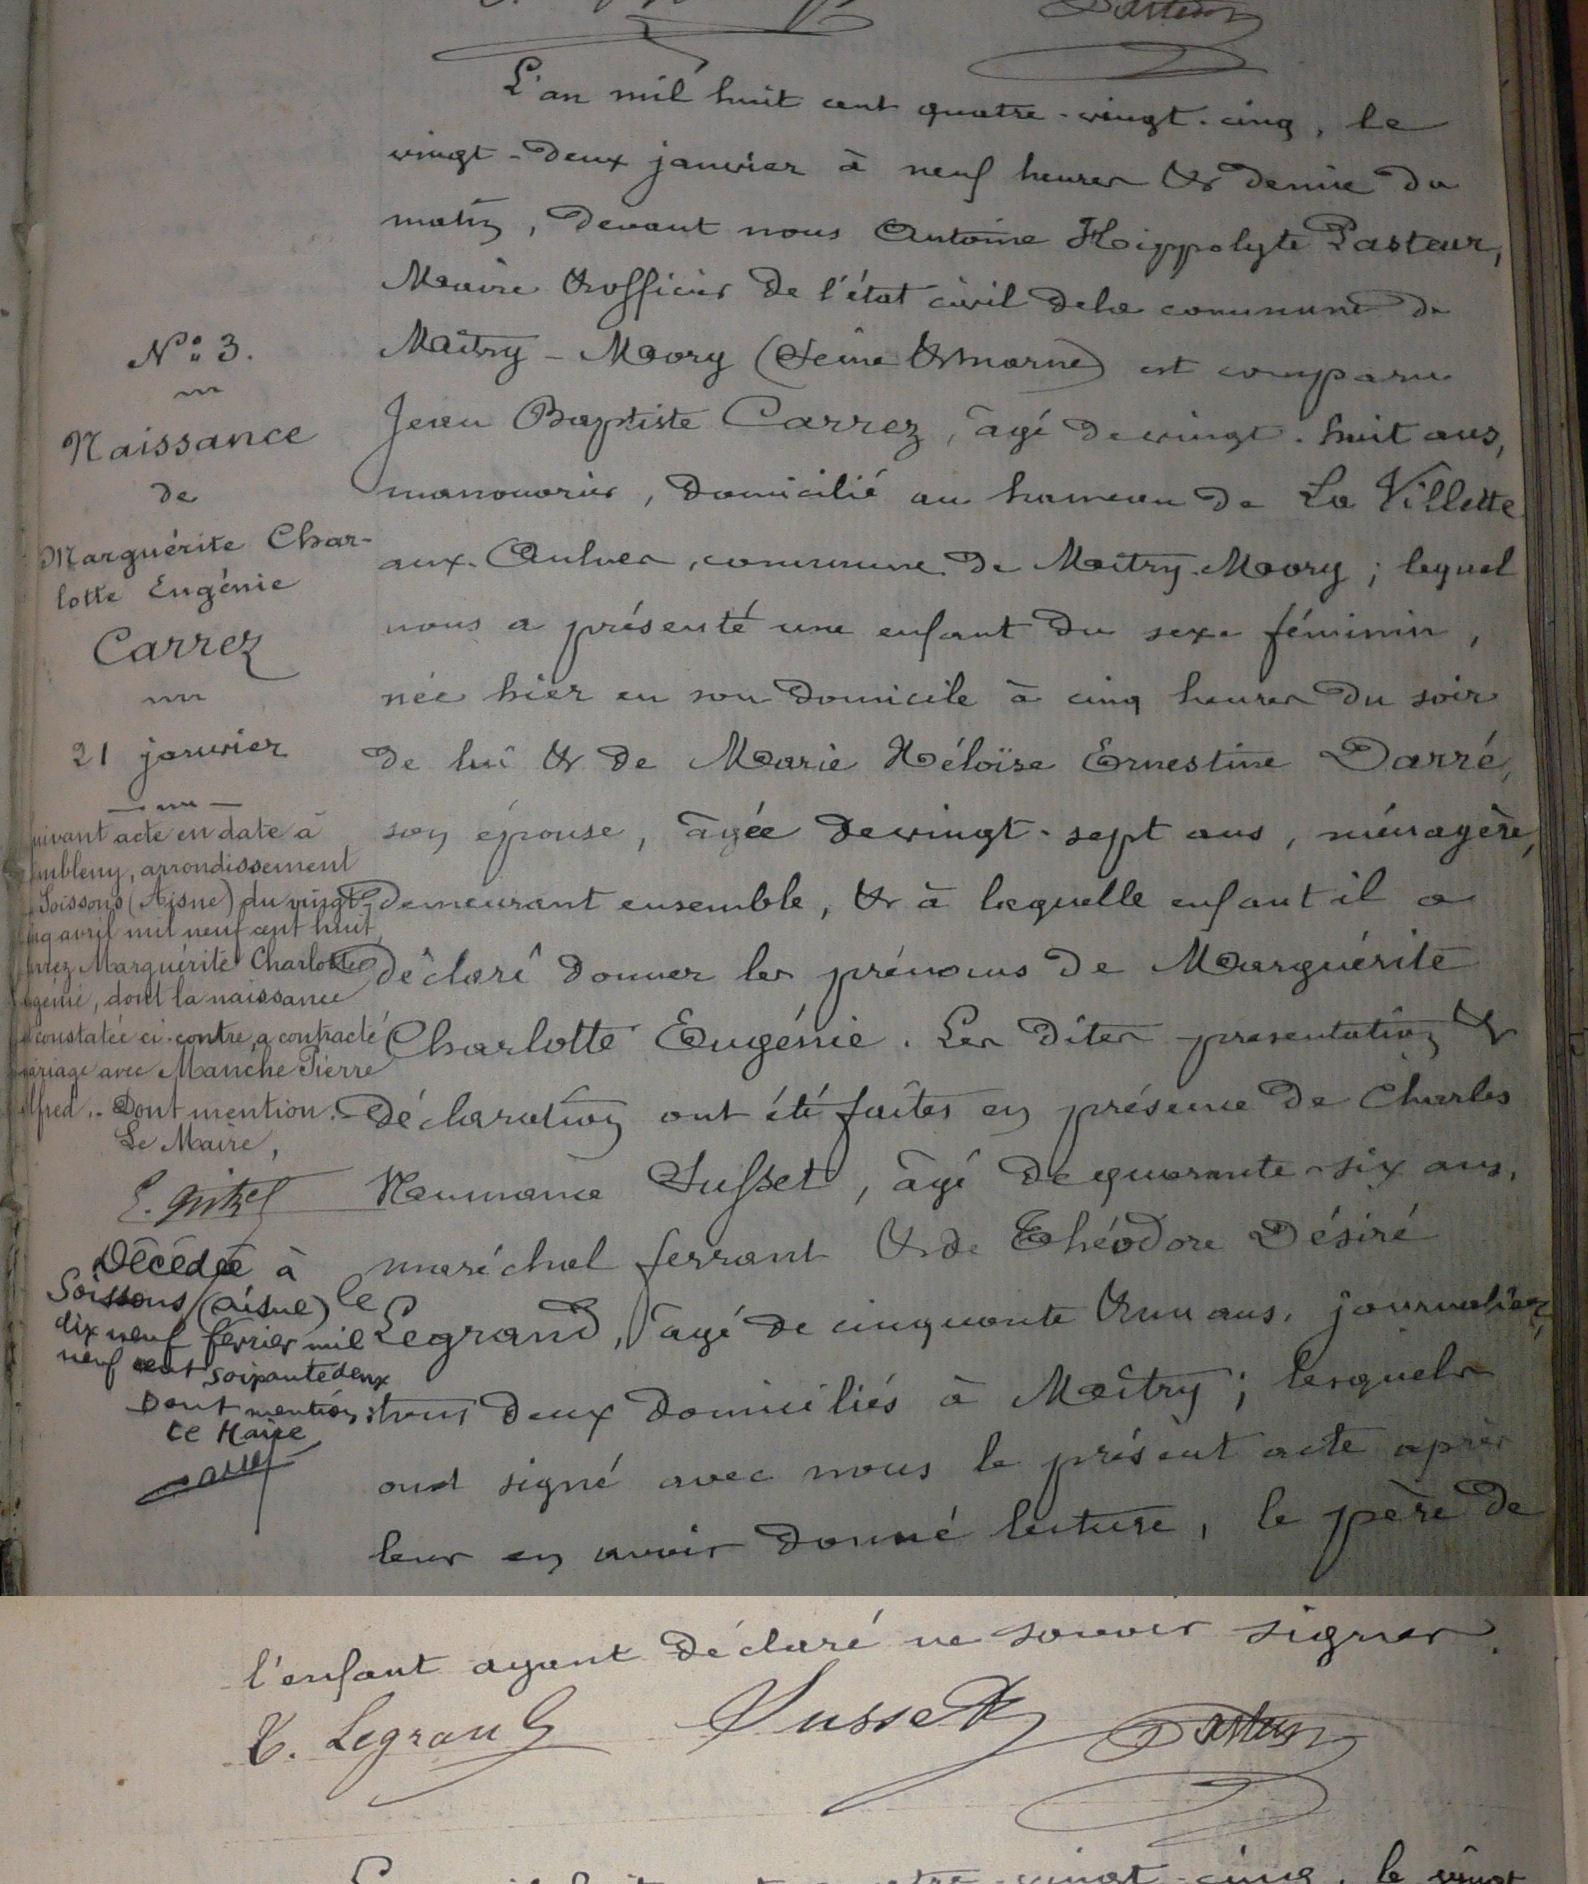 Pasteur
L'an mil huit cent quatre-vingt-cinq, le
vingt-deux janvier à neuf heures & demie du
matin, devant nous Antoine Hippolyte Pasteur,
Maire & officier de l'état civil de la commune de
Maîtry-Moory (Seine & Marne) est comparu
Jean Baptiste Carrez, âgé de vingt-huit ans,
manouvrier, domicilié au hameau de La Villette
aux-Aulnes, commune de Maîtry-Moory ; lequel
nous a présenté une enfant du sexe féminin,
née hier en son domicile à cinq heures du soir
de lui & de Marie Héloïse Ernestine Darré,
son épouse, âgée de vingt-sept ans, ménagère,
demeurant ensemble, & à laquelle enfant il a
déclaré donner les prénoms de Marguérite
Charlotte Eugénie. Les dites présentation &
déclaration ont été faites en présence de Charles
Susset, âgé de quarante-six ans,
maréchal ferrant & de Théodore Désiré
Legrand, âgé de cinquante & un ans, journalier,
tous deux domiciliés à Maîtry ; lesquels
ont signé avec nous le présent acte après
leur en avoir donné lecture, le père de
l'enfant ayant déclaré ne savoir signer.
T. Legrand Susset Pasteur
N° 3.
Naissance
de
Marguérite Char-
lotte Eugénie
Carrez
21 janvier
uivant acte en date à
mbleny, arrondissement
Soissons (Aisne) du vingt-
nq avril mil neuf cent huit
rrez Marguérite Charlotte
génie, dont la naissance
constatée ci-contre, a contracté
ariage avec Manche Pierre
lfred.. Dont mention.
Le Maire,
Décédée à
Soissons (Aisne) le
dix neuf février mil
neuf cent soixante deux
Dont mention :
Le Maire
quatre-vingt-cinq, le vingt